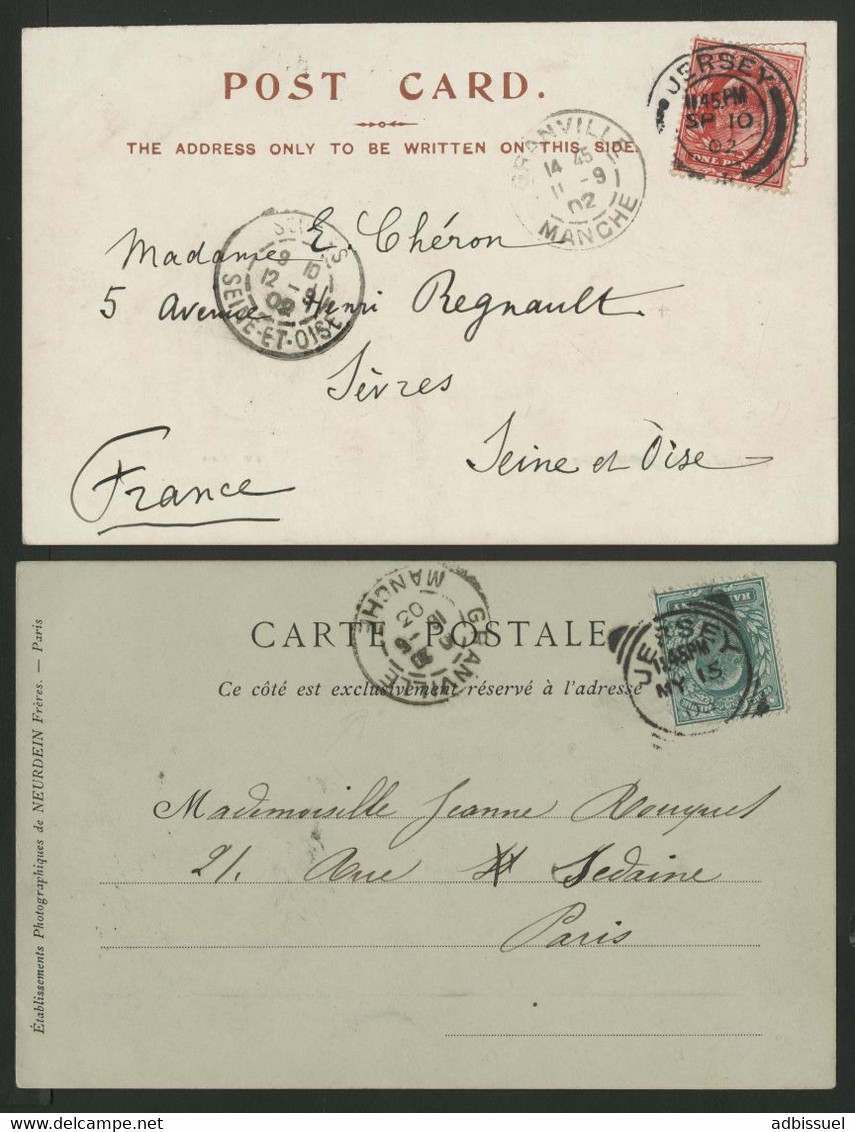 POST CARD.
THE ADDRESS ONLY TO BE WRITTEN ON THIS SIDE.
JERSEY
11.45PM
SP 10
02
ONE PENNY
GRANVILLE
14 45
11 -9
02
MANCHE
SEINE-ET-OISE
Madame E. Chéron
5 Avenue Henri Regnault.
Sèvres
Seine et Oise
France
GRANVILLE
MANCHE
CARTE POSTALE
Ce côté est exclusivement réservé à l'adresse
JERSEY
11.45PM
MY 15
Établissements Photographiques de NEURDEIN Frères. — Paris
Mademoiselle Jeanne Bouquet
21. Rue Sedaine
Paris
www.delcampe.net
adbissuel